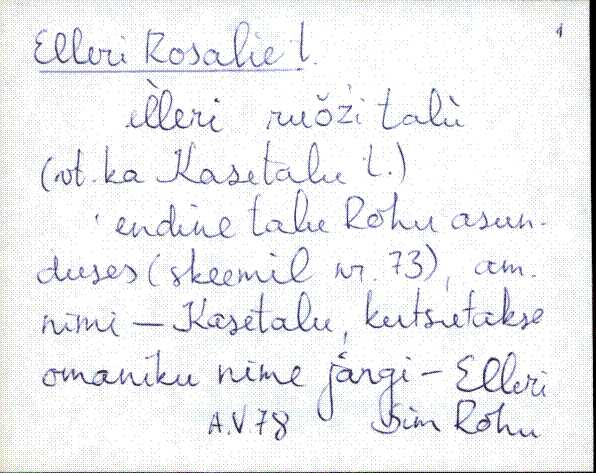 Elleri Rosalie t.
èlleri ruŏži talù
(vt. ka Kasetalu t.)
endine talu Rohu asun-
duses (skeemil nr. 73), am.
nimi – Kasetalu, kutsutakse
omaniku nime järgi – Elleri
A.V 78 Sim Rohu